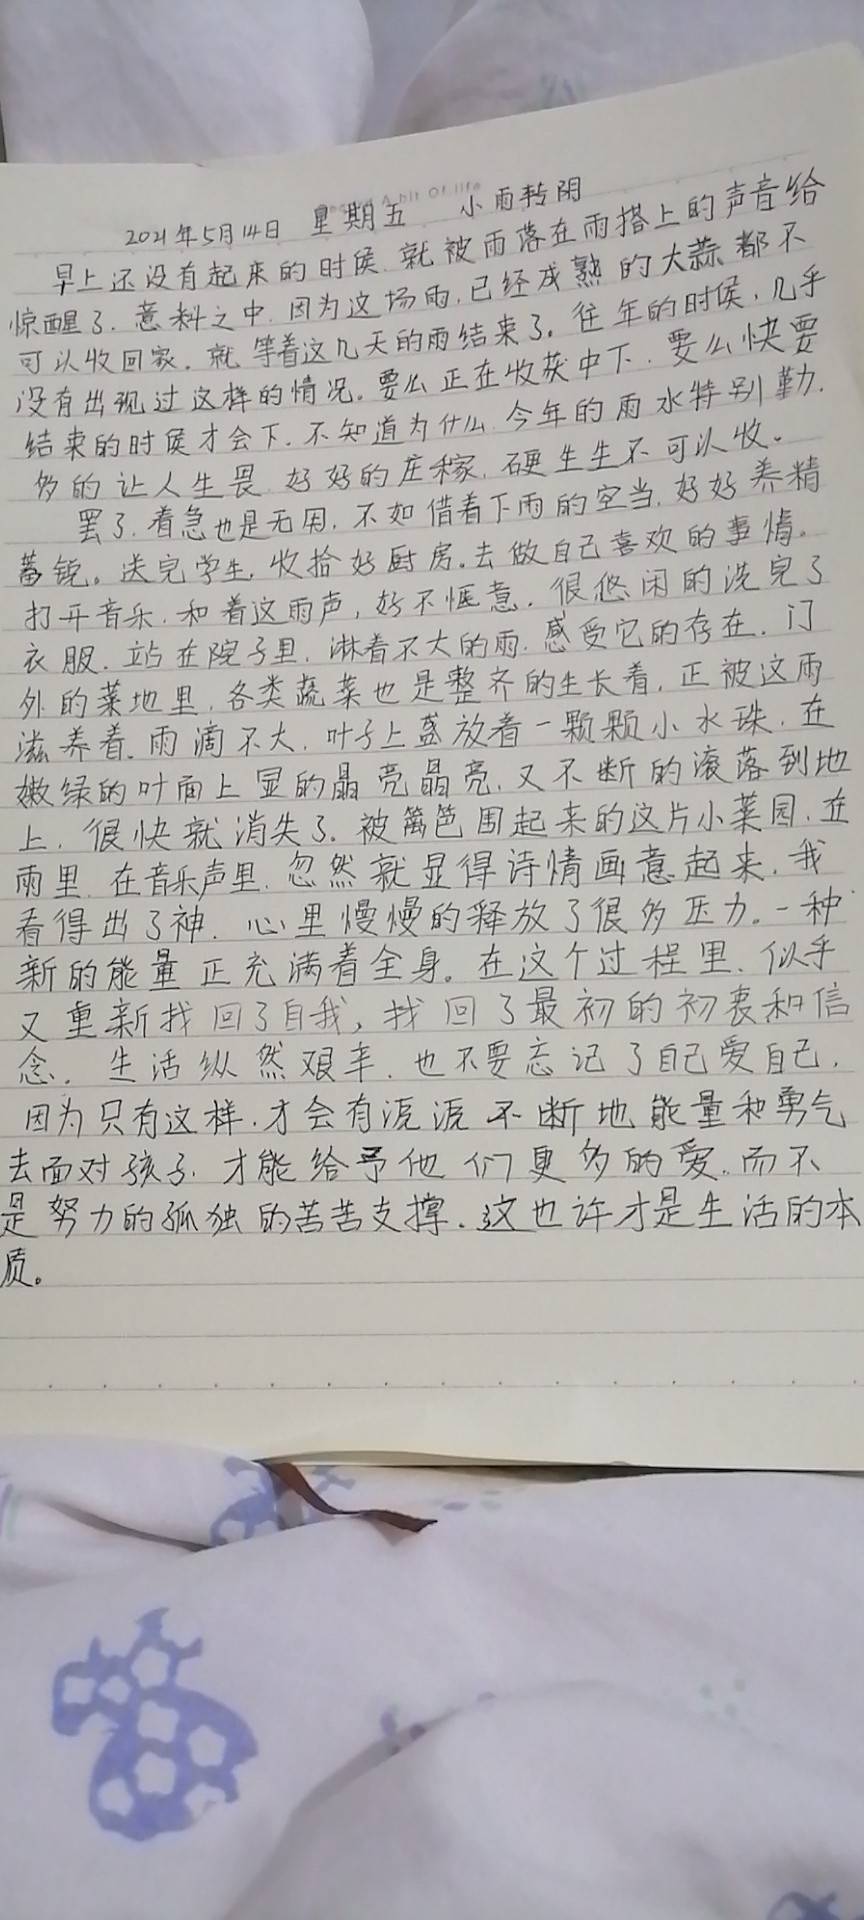 A bit Of life
2021年5月14日 星期五 小雨转阴
早上还没有起来的时侯.就被雨落在雨搭上的声音给
惊醒了.意料之中.因为这场雨.已经成熟的大蒜都不
可以收回家.就等着这几天的雨结束了。往年的时侯.几乎
没有出现过这样的情况。要么正在收获中下.要么快要
结束的时侯才会下.不知道为什么.今年的雨水特别勤.
多的让人生畏.好好的庄稼.硬生生不可以收。
罢了.着急也是无用.不如借着下雨的空当.好好养精
蓄锐。送完学生.收拾好厨房.去做自己喜欢的事情。
打开音乐.和着这雨声,好不惬意.很悠闲的洗完了
衣服.站在院子里.淋着不大的雨.感受它的存在.门
外的菜地里.各类蔬菜也是整齐的生长着.正被这雨
滋养着.雨滴不大.叶子上盛放着一颗颗小水珠.在
嫩绿的叶面上显的晶亮晶亮.又不断的滚落到地
上.很快就消失了.被篱笆围起来的这片小菜园.在
雨里.在音乐声里.忽然就显得诗情画意起来.我
看得出了神.心里慢慢的释放了很多压力。一种
新的能量正充满着全身。在这个过程里.似乎
又重新找回了自我,找回了最初的初衷和信
念.生活纵然艰辛.也不要忘记了自己爱自己.
因为只有这样.才会有源源不断地能量和勇气
去面对孩子.才能给予他们更多的爱.而不
是努力的孤独的苦苦支撑.这也许才是生活的本
质。